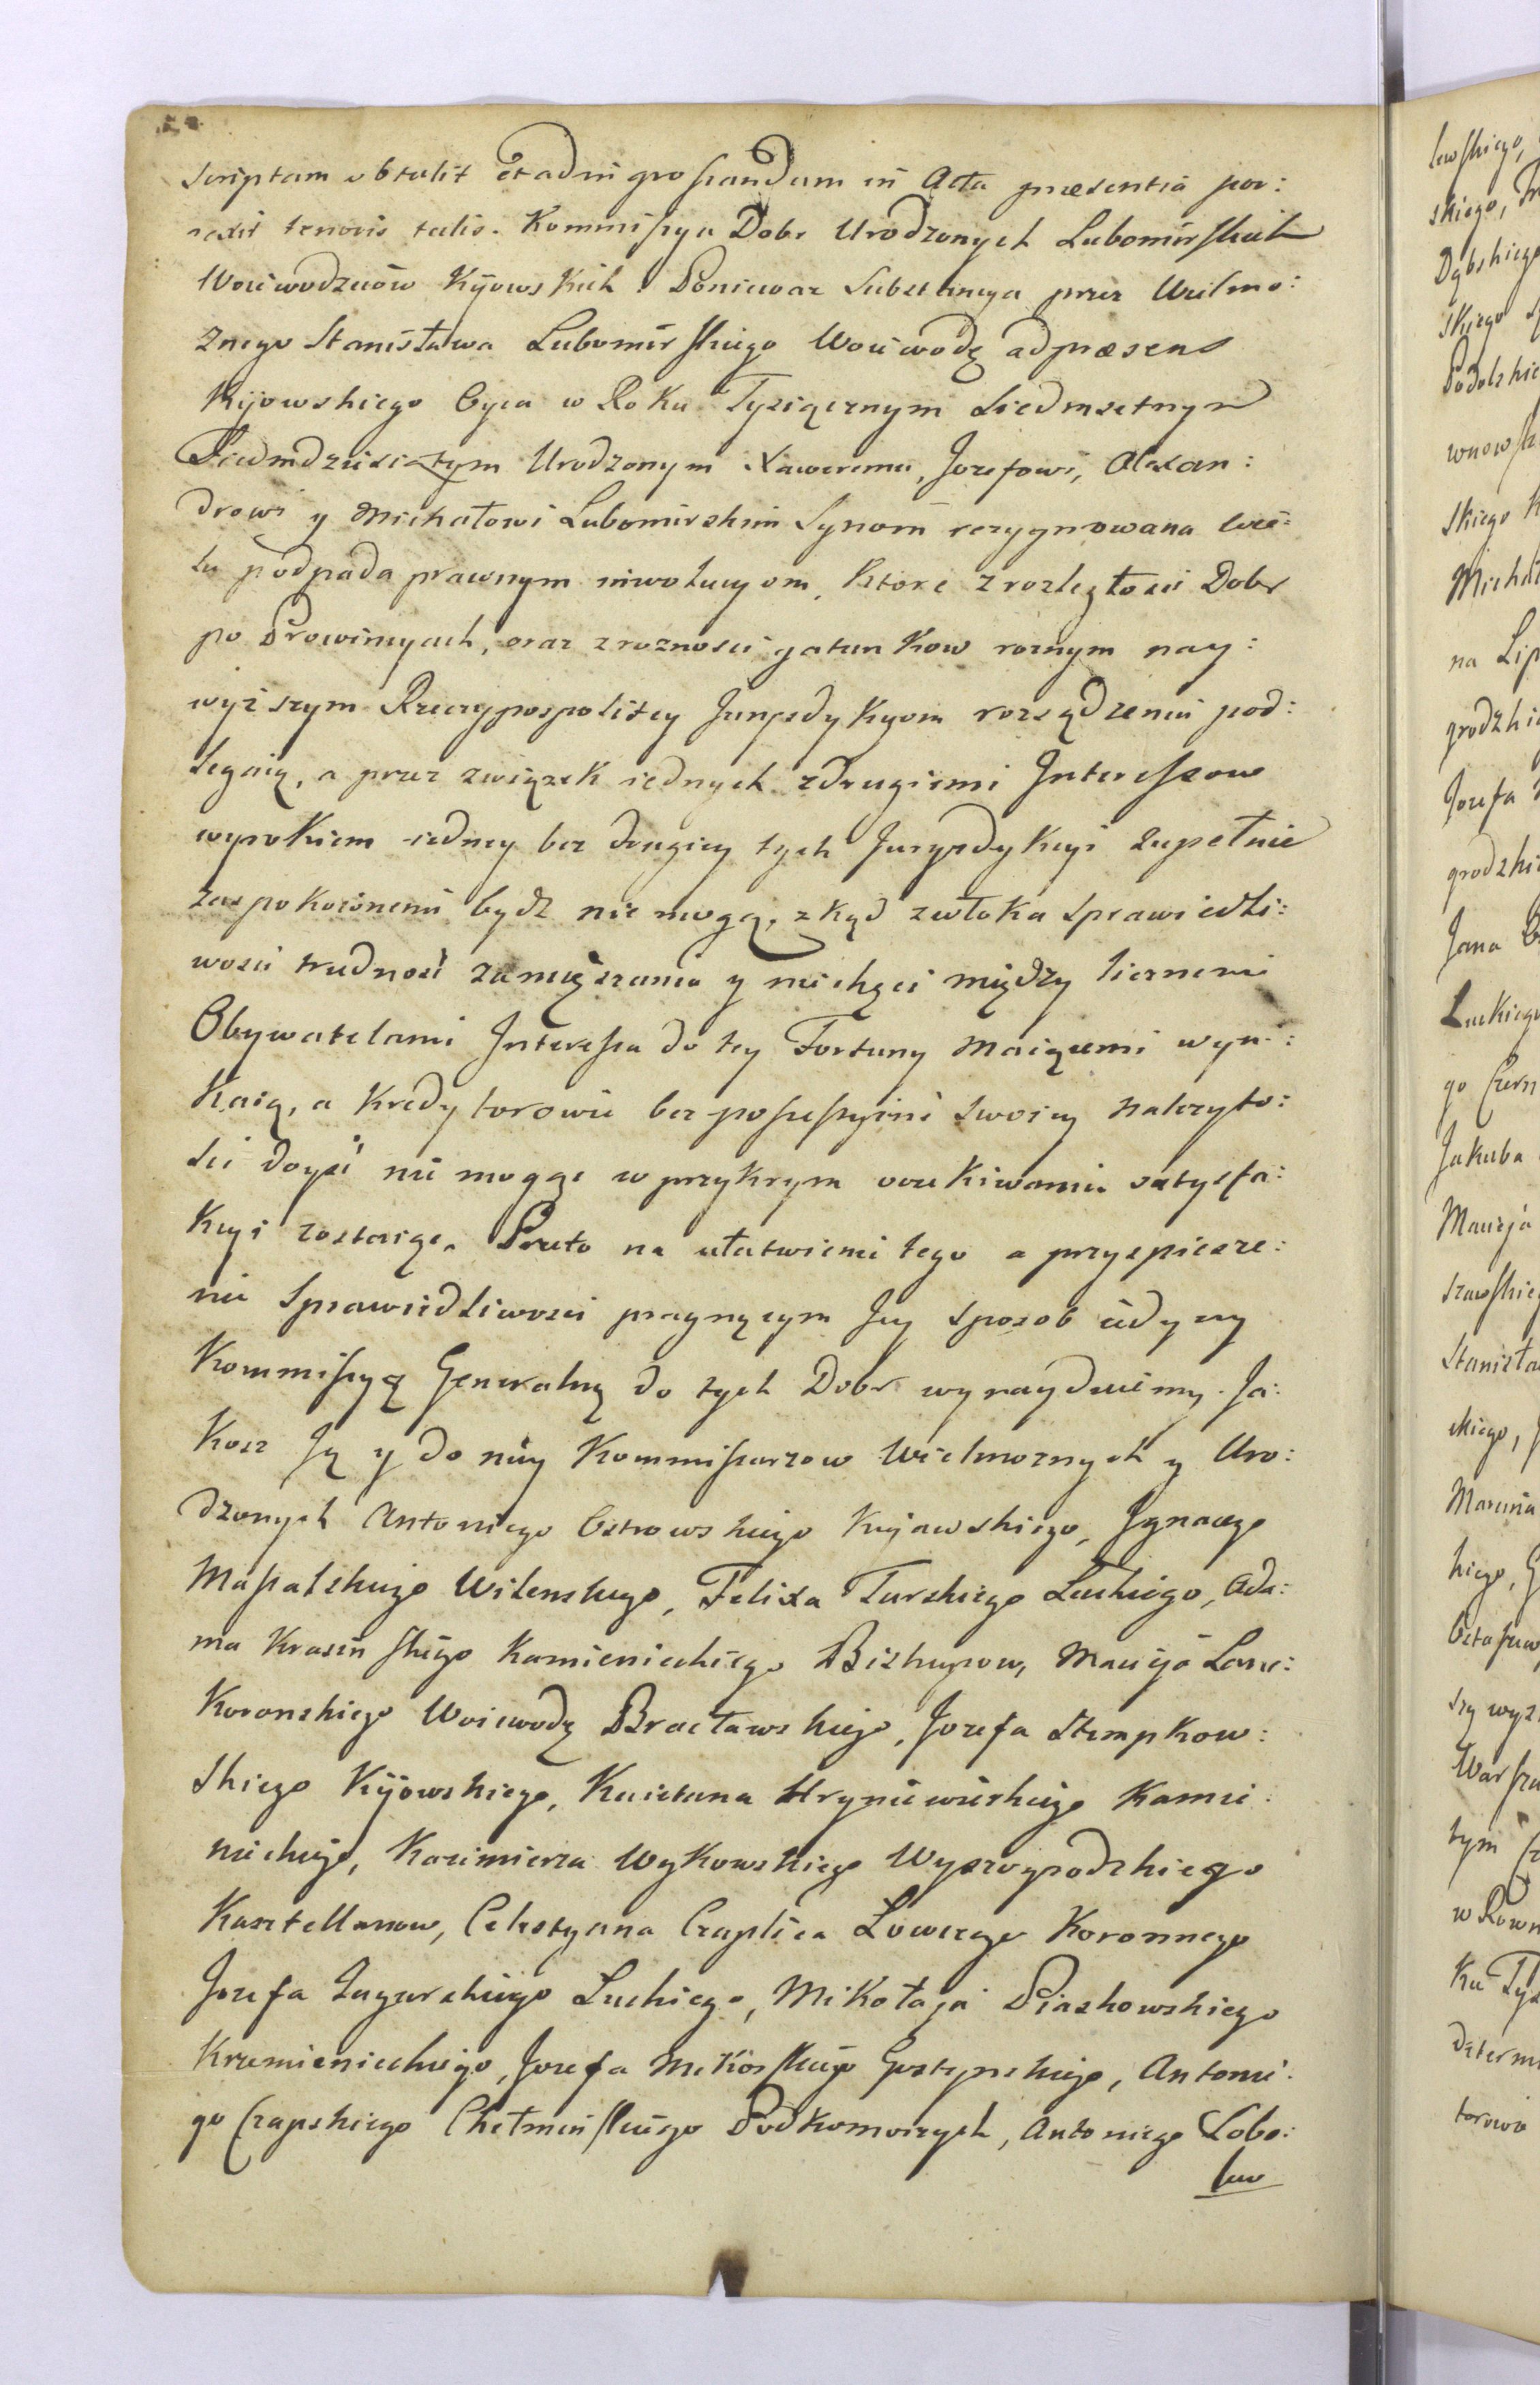 scriptam obtulit et ad ingrossandum in Acta praesentia por:
rexit tenoris talis. Kommissya Dobr Urodzonych Lubomirskich
Woiewodzicow Kijowskich Poniewaz Substancya przez Wielmo:
znego Stanisława Lubomirskiego Woiewodę ad praesens
Kijowskiego Oyca w Roku Tysiącznym Siedmsetnym
Siedmdziesiątym Urodzonym Xaweremu, Jozefowi, Alexan:
drowi y Michałowi Lubomirskim Synom rezygnowana wie:
lu podpada prawnym inwolucyom, ktore z rozległosci Dobr
po Prowincyach, oraz z roznosci gatunkow roznym nay:
wyższym Rzeczypospolitey Juryzdykcyom rozsądzeniu pod:
legaią, a przez związek iednych z drugiemi Interessow
wyrokiem iedney bez drugiey tych Juryzdykcyi zupełnie
zaspokoionemi bydz nie mogą, zkąd zwłoka sprawiedli:
wosci trudnosc zamięszania y niechęci między licznemi
Obywatelami Interessa do tey Fortuny maiącemi wyni:
kaią, a kredytorowie bez possessyini swoiey nalezyto:
sci doysc nie mogąc w przykrym oczekiwaniu satysfa:
kcyi zostaią. Przeto na ułatwienie tego a przyspiesze:
nie Sprawiedliwosci pragnącym Jey sposob iedyny
Kommissyą Generalną do tych Dobr wynayduiemy. Ja:
kosz Ją y do niey Kommissarzow Wielmoznych y Uro:
dzonych Antoniego Ostrowskiego Kujawskiego, Jgnacego
Massalskiego Wilenskiego, Felixa Turskiego Łuckiego, Ada:
ma Krasinskiego Kamienieckiego Biskupow, Macieja Lanc:
koronskiego Woiewodę Bracławskiego, Jozefa Stempkow:
skiego Kijowskiego, Kaietana Hryniewieckiego Kamie:
nieckiego, Kazimierza Wykowskiego Wyszogrodzkiego
Kasztellanow, Celestyna Czaplica Łowczego Koronnego
Jozefa Zagurskiego Łuckiego, Mikołaja Piaskowskiego
Krzemienieckiego, Jozefa Mikorskiego Gostynskiego, Antonie:
go Czapskiego Chełminskiego Podkomorzych, Antoniego Łobo:
lew